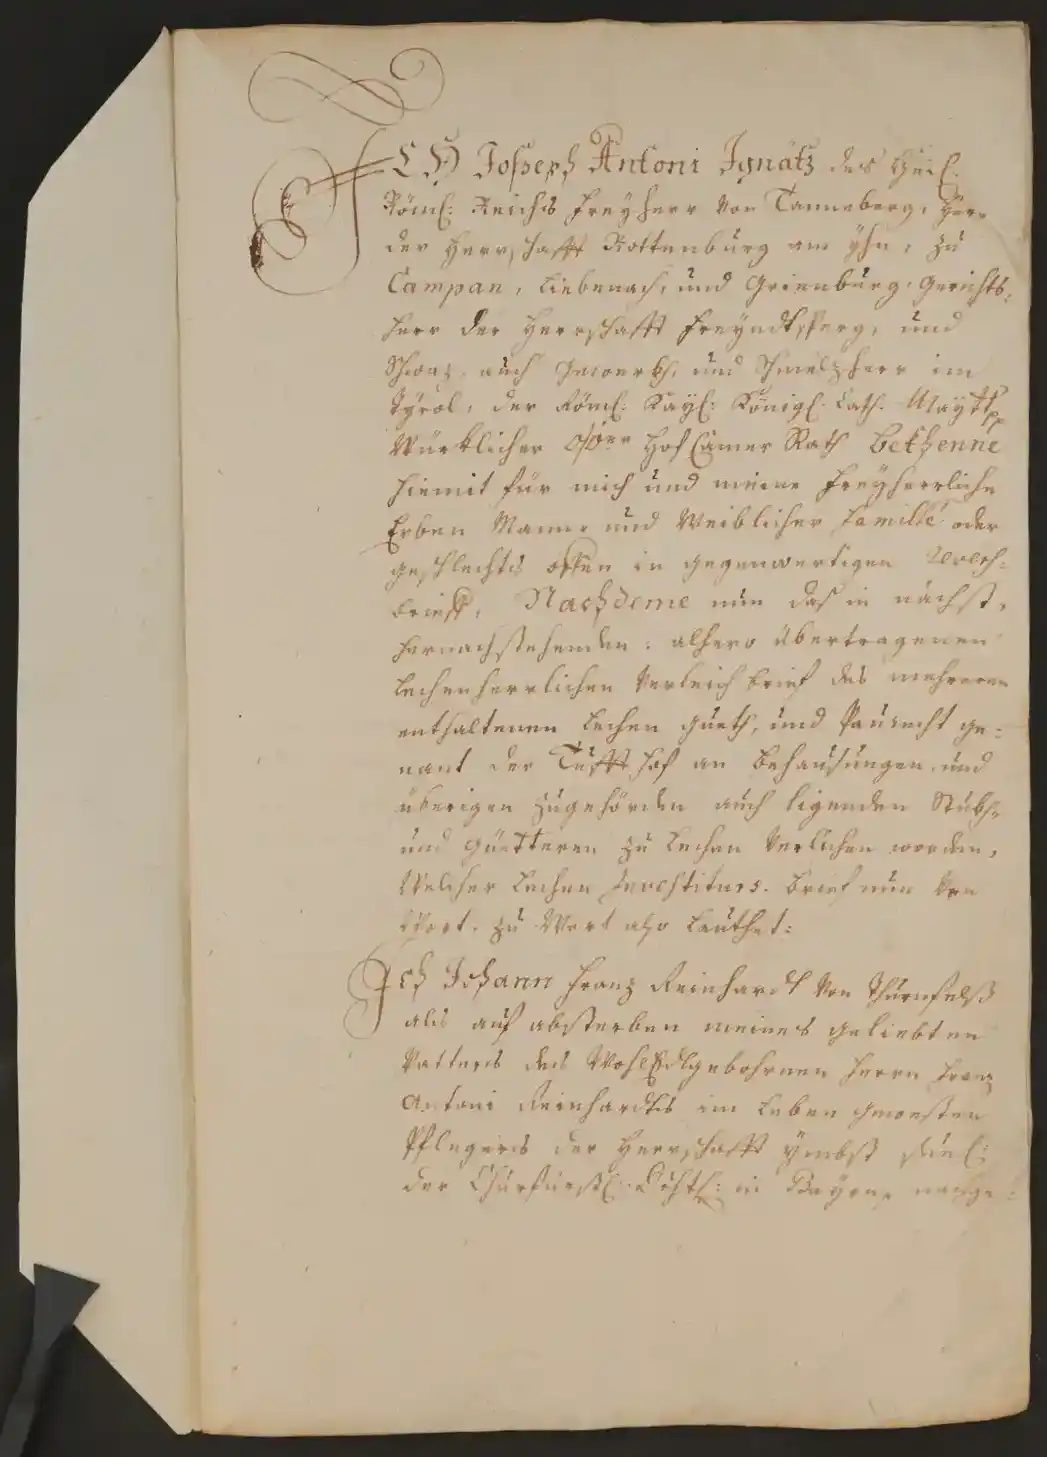 ICH Joseph Antoni Ignatz des Heil:
Röml: Reichs Freyherr von Tanneberg, Herr
der Herrschafft Rottenburg am Yhn, zu
Campan, Liebenach, und Grienburg, Gerichts-
herr der Herrschafft Freyndtsperg, und
Schwaz, auch Gwerkh, und Schmelzherr im
Tyrol, der Röml: Kayl: Königl: Cath: Maytt
Würklicher Hof Camer Rath Bekhenne
hiemit für mich und meine Freyherrliche
Erben Mann- und Weiblicher Familie oder
geschlechts offen in gegenwertigen
brieff, Nachdeme nun das in nächst-
hernachstehenden, alhero übertragenen
Lechenherrlichen Verleich brief des mehreren
enthaltenen Lechen Gueth, und Paurecht ge-
nant der Tufft hof an Behausungen und
überigen zugehörden auch ligenden Stukh-
und Güetteren zu Lechen Verlichen worden,
Welcher Lechen Investiturs-brief nun Von
Wort zu Wort also lauthet:
Ich Johann Franz Reinhardt Von Thurnfelß
als auf absterben meines geliebten
Vatters des WohlEdlgebohrnen Herrn Franz
Antoni Reinhardts im Leben gwesten
Pflegers der Herrschafft Ymbst
der Churfürstl: in Bayrn